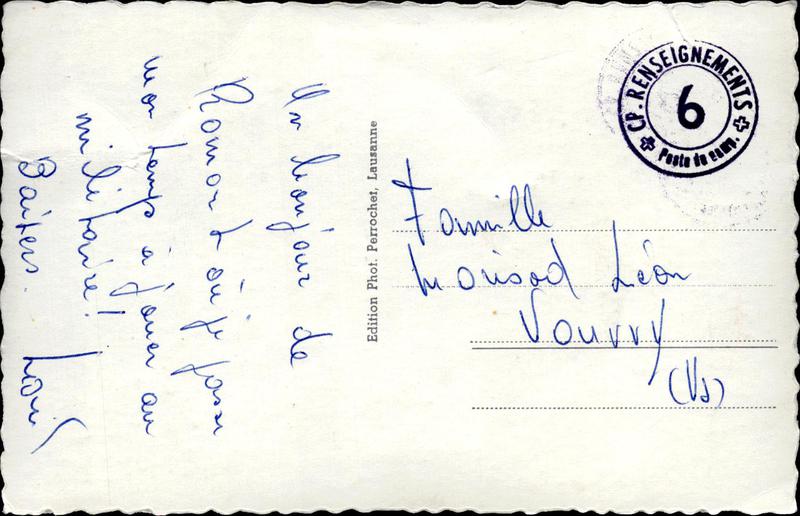 Un bonjour de
Romont où je passe
mon temps à jouer au
militaire!
Baisers. Louis
Edition Phot. Perrochet, Lausanne
CP. RENSEIGNEMENTS
6
Poste de camp.
Famille
Morisod Léon
Vouvry
(Vs)